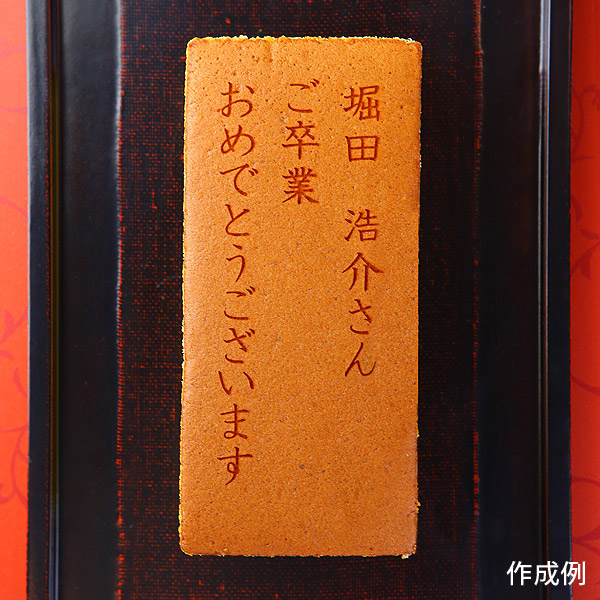 堀田　浩介さん
ご卒業
おめでとうございます
作成例